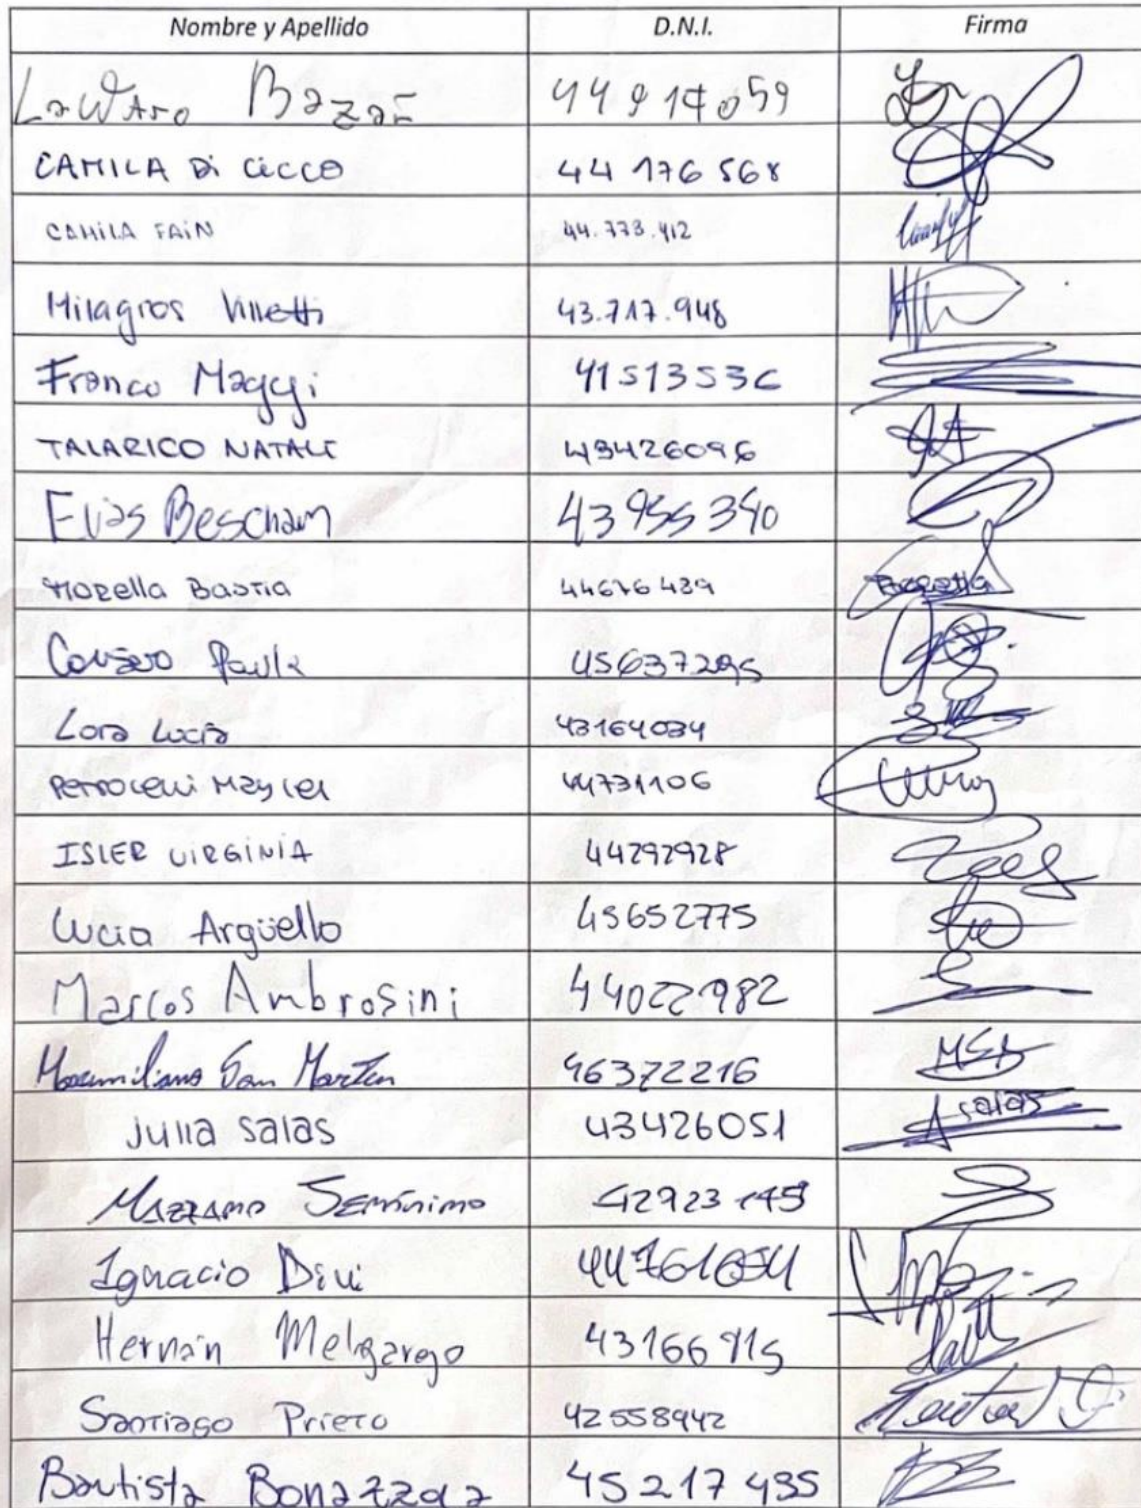 Nombre y Apellido D.N.I. Firma
Lautaro Bazán 44917059
CAMILA Di CICCO 44 176 568
CAMILA FAIN 44.773.412
Milagros Villetti 43.717.948
Franco Maggi 41513536
TALARICO NATALI 43426096
Elias Bescham 43955340
Morella Bastia 44676489
Paula 45637295
Lora Lucia 43164034
44731106
ISLER VIRGINIA 44292928
Lucia Argüello 45652775
Marcos Ambrosini 44022982
Maximiliano San Martin 46372216
Julia Salas 43426051 Salas
MAZZAMO Jerónimo 42923145
Ignacio Divi 44761654
Hernán Melgarejo 43166915
Santiago Prieto 42558942
Bautista Bonazzola 45217435